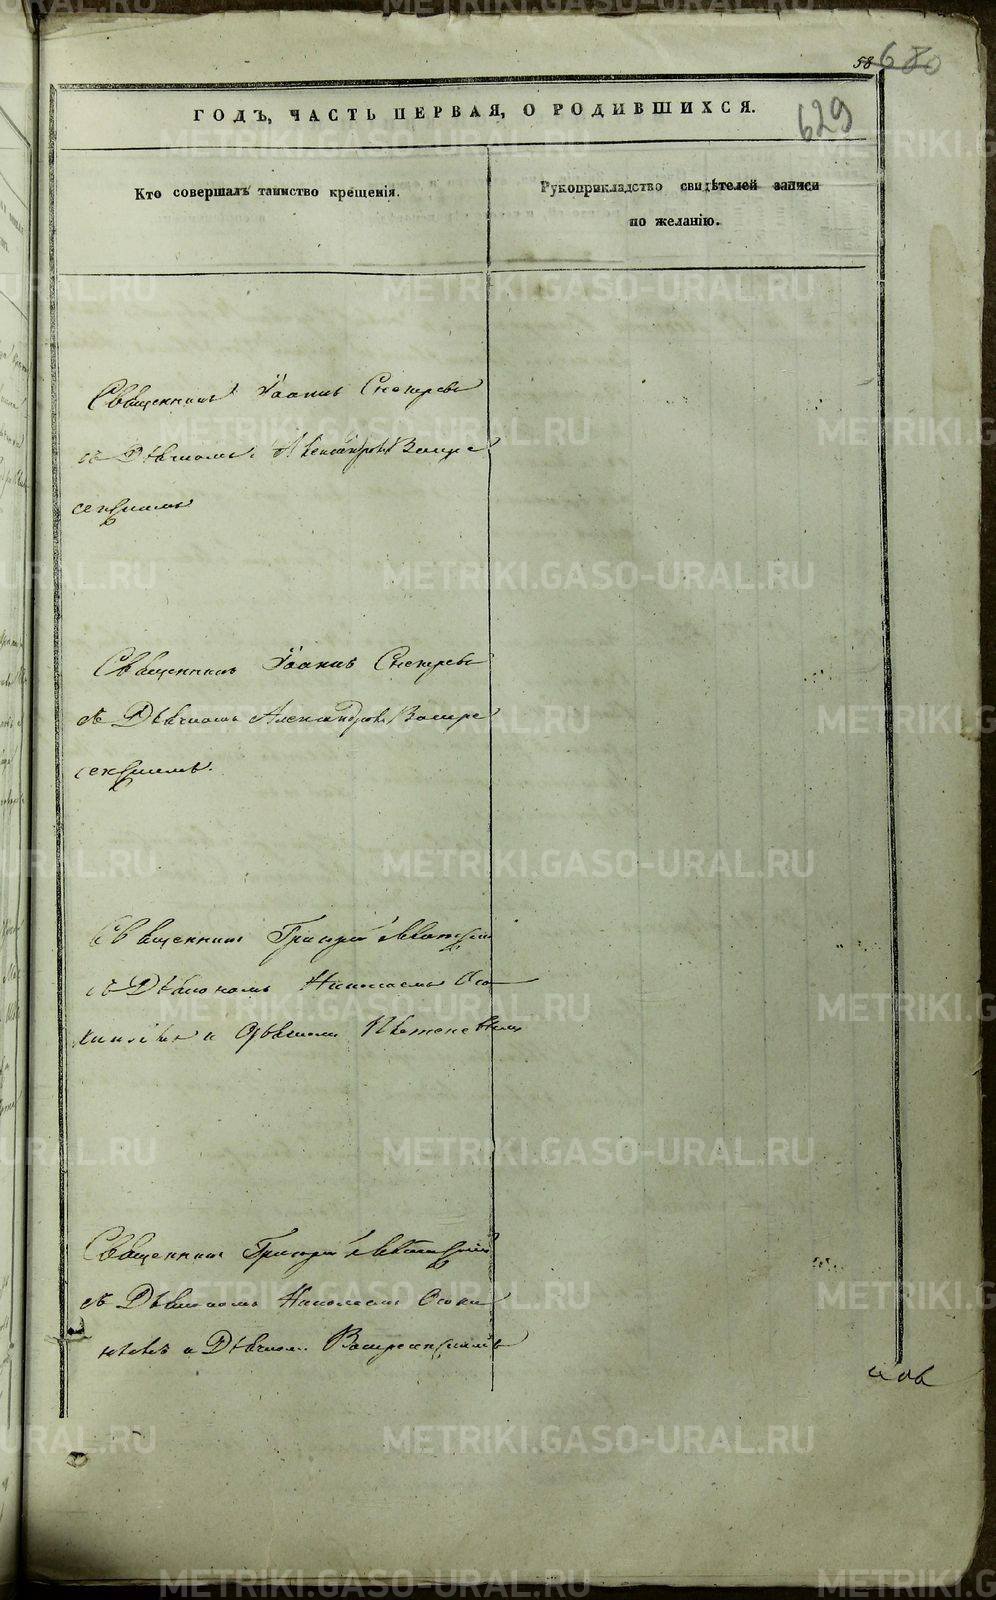 58 680
629
ГОДЪ, ЧАСТЬ ПЕРВАЯ, О РОДИВШИХСЯ.
Кто совершалъ таинство крещенія.
Рукоприкладство свидѣтелей записи
по желанію.
Священникъ Іоаннъ
съ Дьячкомъ Александромъ Воскре
сенскимъ
Священникъ Іоаннъ
съ Дьячкомъ Александромъ Воскре
сенскимъ.
Священникъ Григорій
съ Діакономъ Николаемъ Осо
и Дьячкомъ
Священникъ Григорій
съ Діакономъ Николаемъ Осоки
и Дьячкомъ Воскресенскимъ
METRIKI.GASO-URAL.RU